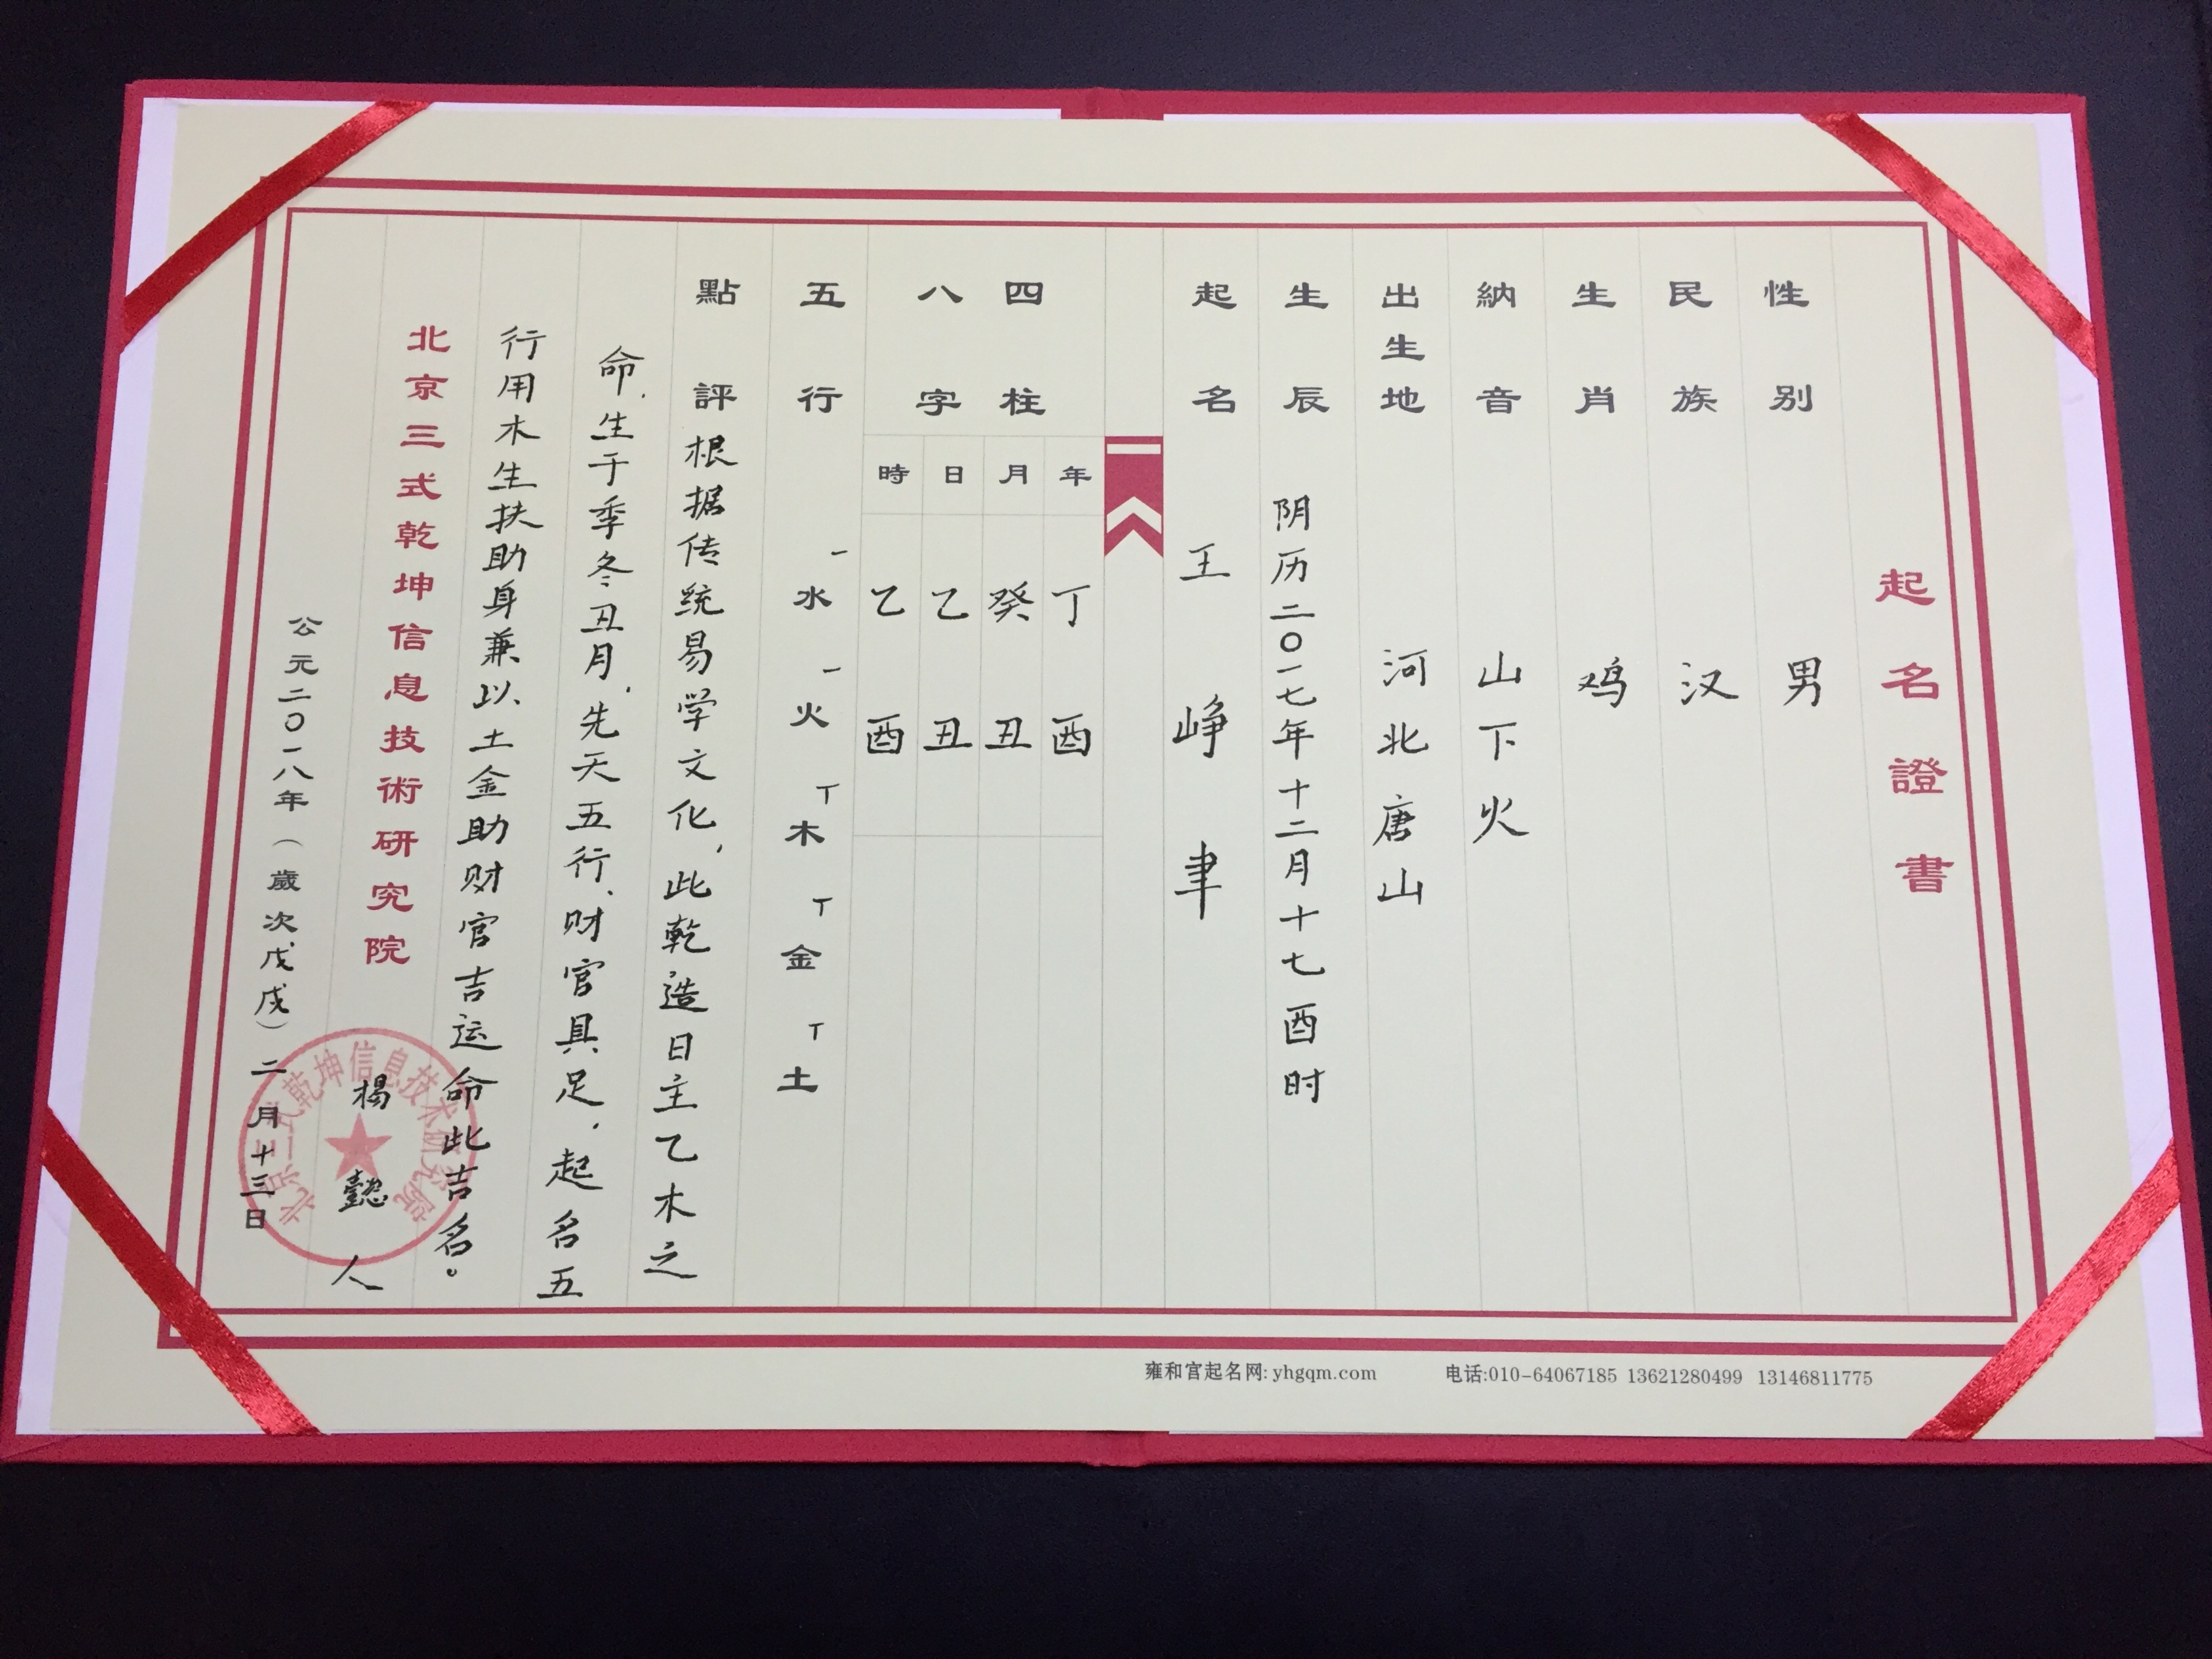 起名證書
性别 男
民族 汉
生肖 鸡
納音 山下火
出生地 河北唐山
生辰 阴历二〇一七年十二月十七酉时
起名 王峥聿
四柱
八字
年 丁酉
月 癸丑
日 乙丑
時 乙酉
五行 一水 一火 丅木 丅金 丅土
點評 根据传统易学文化,此乾造日主乙木之
命,生于季冬丑月,先天五行,财官具足,起名五
行用木生扶助身兼以土金助财官吉运命此吉名。
北京三式乾坤信息技術研究院
杨懿人
公元二〇一八年(歲次戊戌)二月十三日
北京三式乾坤信息技术研究院
雍和宫起名网: yhgqm.com 电话:010-64067185 13621280499 13146811775